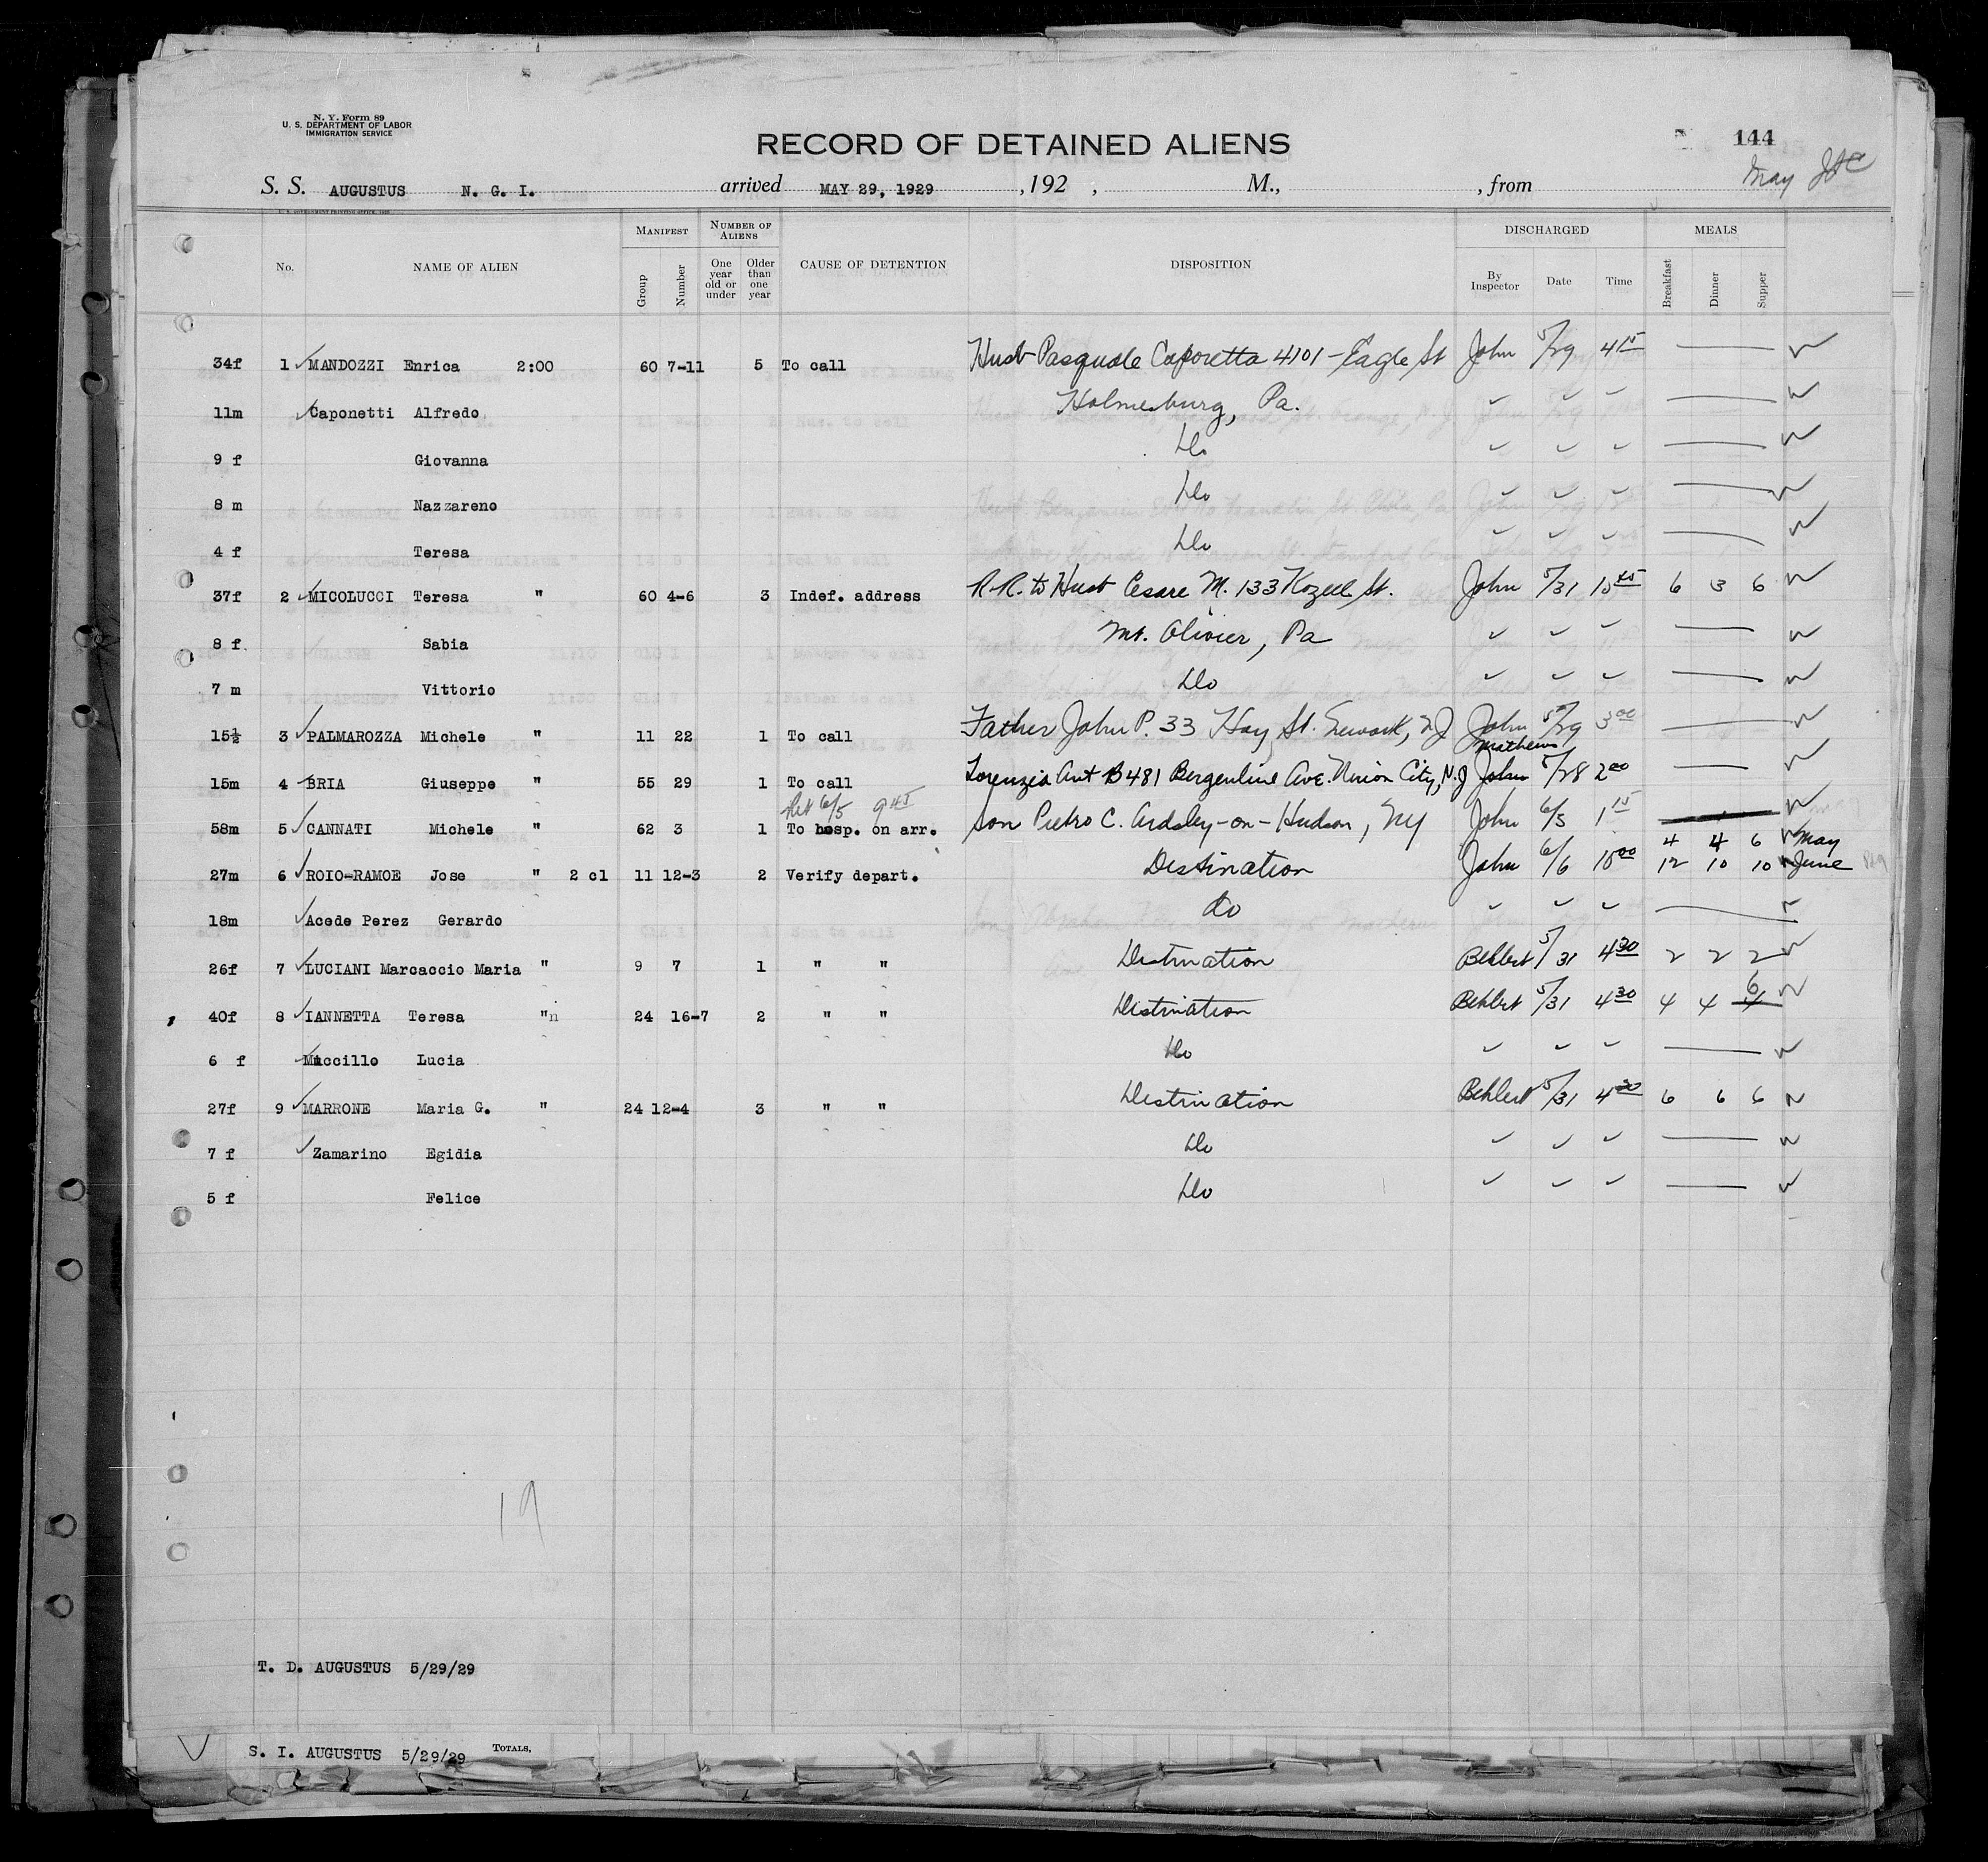 N. Y. Form 89
U. S. DEPARTMENT OF LABOR
IMMIGRATION SERVICE
RECORD OF DETAINED ALIENS
144
May
S. S. AUGUSTUS N. G. I. arrived MAY 29, 1929 , 192 , M., , from
No. NAME OF ALIEN MANIFEST Group Number NUMBER OF ALIENS One year old or under Older than one year CAUSE OF DETENTION DISPOSITION DISCHARGED By Inspector Date Time MEALS Breakfast Dinner Supper
34f 1 MANDOZZI Enrica 2:00 60 7-11 5 To call Husb Pasquale Caporetta 4101 - Eagle St John 5/29 4 15
11m Caponetti Alfredo Holmesburg, Pa.
9 f Giovanna Do
8 m Nazzareno Do
4 f Teresa Do
37f 2 MICOLUCCI Teresa " 60 4-6 3 Indef. address R.R. to Husb Cesare M. 133 Kozell St. John 5/31 10 45 6 3 6
8 f Sabia Mt. Olivier, Pa
7 m Vittorio Do
15½ 3 PALMAROZZA Michele " 11 22 1 To call Father John P. 33 Hay St. Newark, NJ John 5/29 3 00
Mathews
15m 4 BRIA Giuseppe " 55 29 1 To call Lorenzia Ant B 481 Bergenline Ave. Union City, N.J John 5/28 2 00
Ret 6/5 9 45
58m 5 CANNATI Michele " 62 3 1 To hosp. on arr. Son Pietro C. Ardsley-on-Hudson, NY John 6/5 1 15
4 4 6 May
27m 6 ROIO-RAMOE Jose " 2 cl 11 12-3 2 Verify depart. Destination John 6/6 10 00 12 10 10 June
18m Acede Perez Gerardo do
26f 7 LUCIANI Marcaccio Maria " 9 7 1 " " Destination Behlert 5/31 4 30 2 2 2
6
40f 8 IANNETTA Teresa "n 24 16-7 2 " " Destination Behlert 5/31 4 30 4 4 4
6 f Muccillo Lucia Do
27f 9 MARRONE Maria G. " 24 12-4 3 " " Destination Behlert 5/31 4 30 6 6 6
7 f Zamarino Egidia Do
5 f Felice Do
19
T. D. AUGUSTUS 5/29/29
S. I. AUGUSTUS 5/29/29 TOTALS,